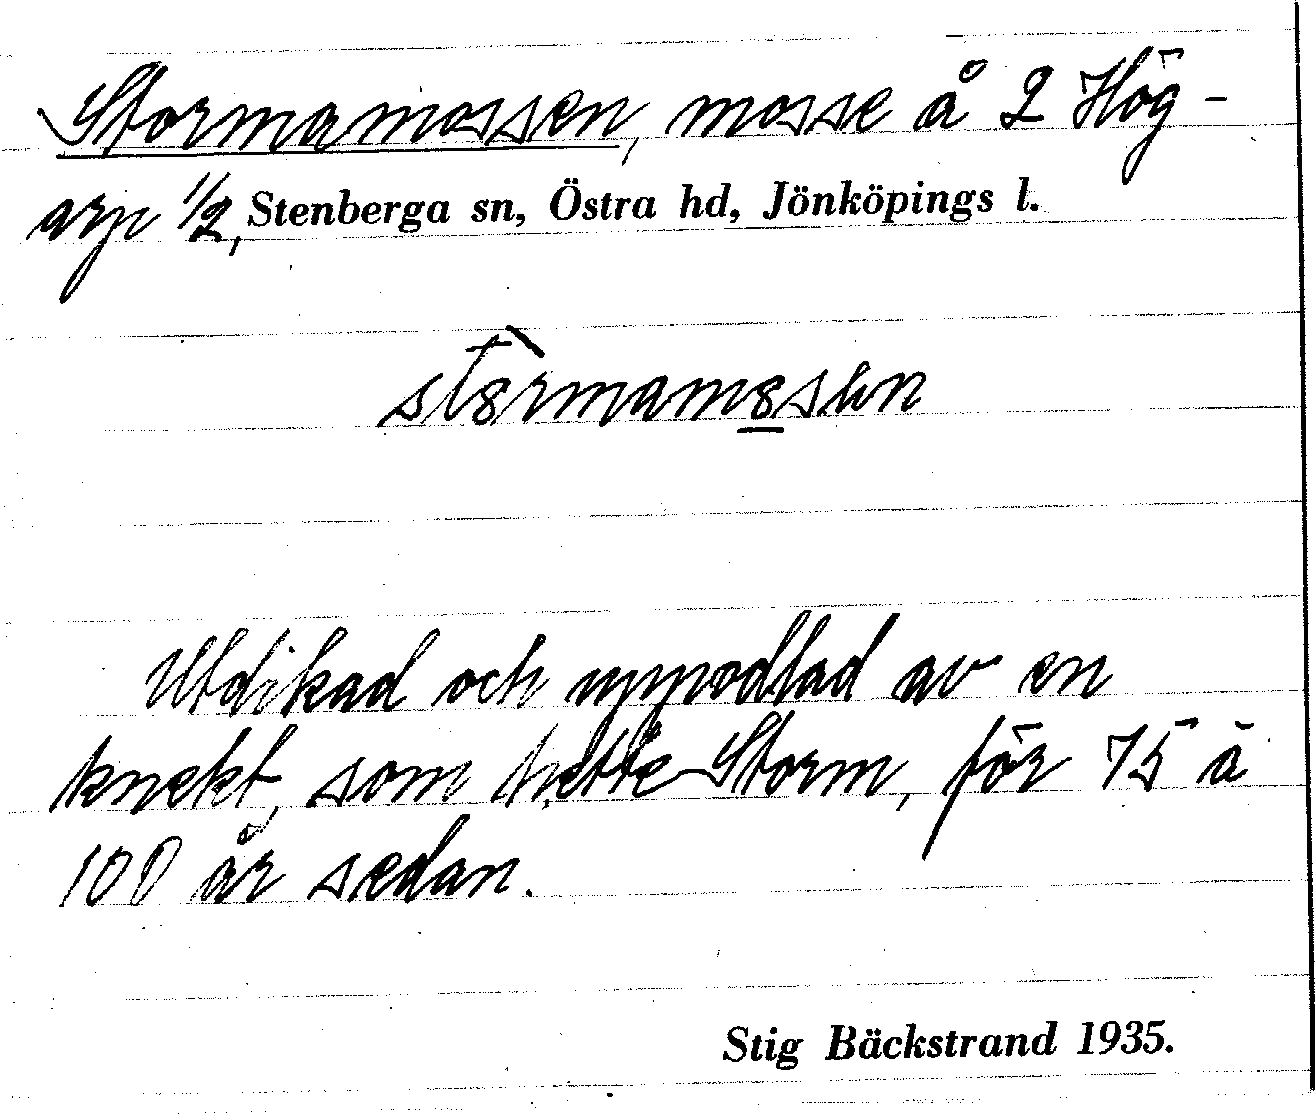 Stormamossen, mosse å 2 Hög-
arp 1/2, Stenberga sn, Östra hd, Jönköpings l.
Utdikad och uppodlad av en
knekt, som hette Storm, för 75 à
100 år sedan.
Stig Bäckstrand 1935.